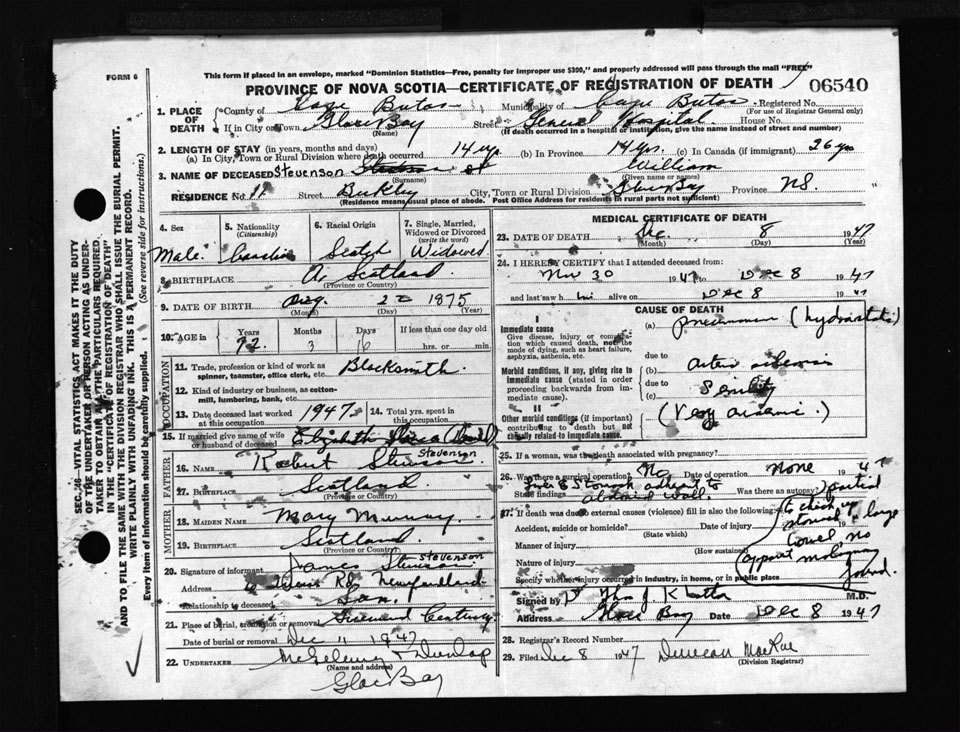 This form if placed in an envelope, marked "Dominion Statistics—Free, penalty for improper use $300," and properly addressed will pass through the mail "FREE"
FORM 6
PROVINCE OF NOVA SCOTIA—CERTIFICATE OF REGISTRATION OF DEATH
06540
1. PLACE OF DEATH
County of Cape Breton Municipality of Cape Breton Registered No.
(For use of Registrar General only)
If in City or Town Glace Bay Street General Hospital House No.
(Name) (If death occurred in a hospital or institution, give the name instead of street and number)
2. LENGTH OF STAY (in years, months and days)
(a) In City, Town or Rural Division where death occurred 14 yrs. (b) In Province 14 yrs. (c) In Canada (if immigrant) 26 yrs
3. NAME OF DECEASED Stevenson William
(Surname) (Given name or names)
RESIDENCE No. 11 Street City, Town or Rural Division Glace Bay Province N.S.
(Residence means usual place of abode. Post Office Address for residents in rural parts not sufficient)
4. Sex
Male
5. Nationality
(Citizenship)
Canadian
6. Racial Origin
Scotch
7. Single, Married, Widowed or Divorced
(write the word)
Widowed
8. BIRTHPLACE Scotland
(Province or Country)
9. DATE OF BIRTH Aug. 22 1875
(Month) (Day) (Year)
10. AGE in
Years Months Days If less than one day old
72 3 16 hrs. or min.
OCCUPATION
11. Trade, profession or kind of work as spinner, teamster, office clerk, etc. Blacksmith.
12. Kind of industry or business, as cotton-mill, lumbering, bank, etc.
13. Date deceased last worked at this occupation 1947
14. Total yrs. spent in this occupation
15. If married give name of wife or husband of deceased Elizabeth
FATHER
16. NAME Robert Stevenson
17. BIRTHPLACE Scotland
(Province or Country)
MOTHER
18. MAIDEN NAME Mary Murray.
19. BIRTHPLACE Scotland
(Province or Country)
20. Signature of informant James Stevenson
Address Rd. Newfoundland
Relationship to deceased Son.
21. Place of burial, cremation or removal Greenwood Cemetery.
Date of burial or removal Dec 11 1947
22. UNDERTAKER & Dunlop
(Name and address)
Glace Bay
MEDICAL CERTIFICATE OF DEATH
23. DATE OF DEATH Dec. 8 1947
(Month) (Day) (Year)
24. I HEREBY CERTIFY that I attended deceased from:
Nov 30 1947 to Dec 8 1947
and last saw him alive on Dec 8 1947
CAUSE OF DEATH
I
Immediate cause
Give disease, injury or complication which caused death, not the mode of dying, such as heart failure, asphyxia, asthenia, etc.
(a) pneumonia (hydrostatic)
due to
Morbid conditions, if any, giving rise to immediate cause (stated in order proceeding backwards from immediate cause)
(b)
due to
(c) Senility
II
Other morbid conditions (if important) contributing to death but not causally related to immediate cause.
(Very anaemic.)
25. If a woman, was the death associated with pregnancy?
26. Was there a surgical operation? No Date of operation None 1947
State findings Liver & Stomach adherent to abdominal wall. Was there an autopsy? partial
to check up stomach & large bowel no apparent malignancy found.
27. If death was due to external causes (violence) fill in also the following:
Accident, suicide or homicide? Date of injury 19
(State which)
Manner of injury
(How sustained)
Nature of injury
Specify whether injury occurred in industry, in home, or in public place
Signed by M.D.
Address Glace Bay Date Dec 8 1947
28. Registrar's Record Number
29. Filed Dec 8 1947 Duncan MacRae
(Division Registrar)
SEC. 36—VITAL STATISTICS ACT MAKES IT THE DUTY OF THE UNDERTAKER OR PERSON ACTING AS UNDERTAKER TO OBTAIN ALL THE PARTICULARS REQUIRED IN THE "CERTIFICATE OF REGISTRATION OF DEATH" AND TO FILE THE SAME WITH THE DIVISION REGISTRAR WHO SHALL ISSUE THE BURIAL PERMIT.
WRITE PLAINLY WITH UNFADING INK. THIS IS A PERMANENT RECORD.
Every item of information should be carefully supplied. (See reverse side for instructions.)